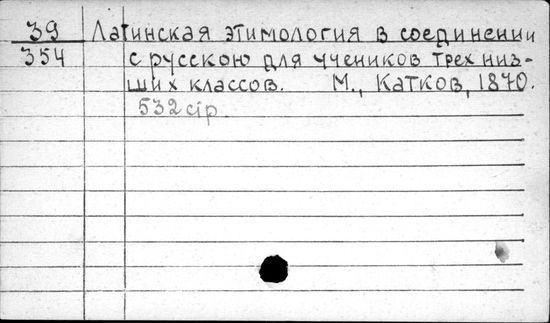 39 Латинская этимология в соединении
354 с русскою для учеников трех низ-
ших классов. М., Катков, 1870.
532 стр.